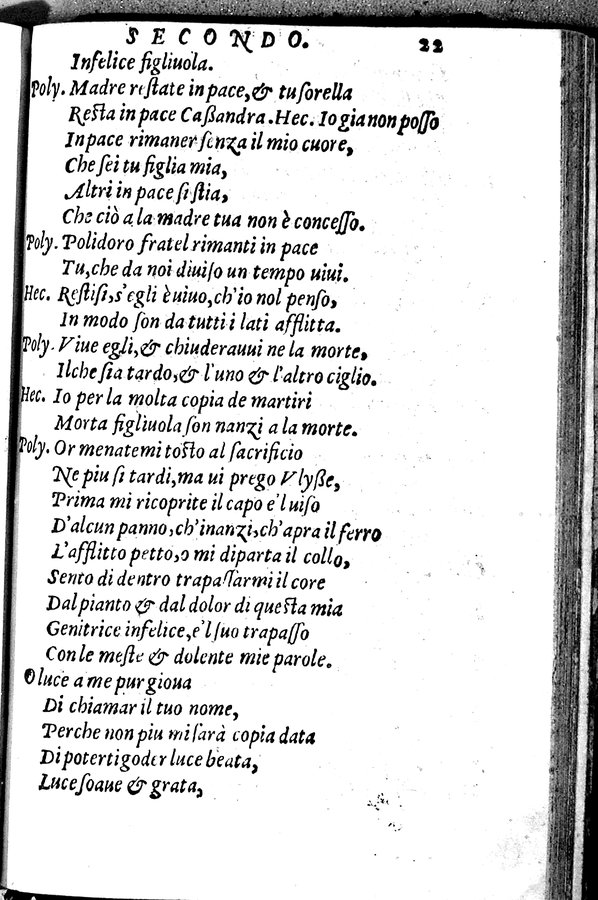 SECONDO. 22
Infelice figliuola.
Poly. Madre reſtate in pace, & tu ſorella
Reſta in pace Caßandra. Hec. Io gia non poſſo
In pace rimaner ſenza il mio cuore,
Che ſei tu figlia mia,
Altri in pace ſi ſtia,
Che ciò a la madre tua non è conceſſo.
Poly. Polidoro fratel rimanti in pace
Tu, che da noi diuiſo un tempo uiui.
Hec. Reſtiſi, s'egli è uiuo, ch'io nol penſo,
In modo ſon da tutti i lati afflitta.
Poly. Viue egli, & chiuderauui ne la morte,
Ilche ſia tardo, & l'uno & l'altro ciglio.
Hec. Io per la molta copia de martiri
Morta figliuola ſon nanzi a la morte.
Poly. Or menatemi toſto al ſacrificio
Ne piu ſi tardi, ma ui prego Vlyße,
Prima mi ricoprite il capo e'l uiſo
D'alcun panno, ch'inanzi, ch'apra il ferro
L'afflitto petto, o mi diparta il collo,
Sento di dentro trapaſſarmi il core
Dal pianto & dal dolor di queſta mia
Genitrice infelice, e'l ſuo trapaſſo
Con le meſte & dolente mie parole.
O luce a me pur gioua
Di chiamar il tuo nome,
Perche non piu mi ſarà copia data
Di poterti goder luce beata,
Luce ſoaue & grata,